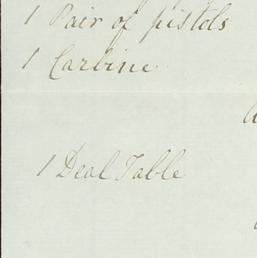 1 Pair of pistols
1 Carbine
1 Deal Table